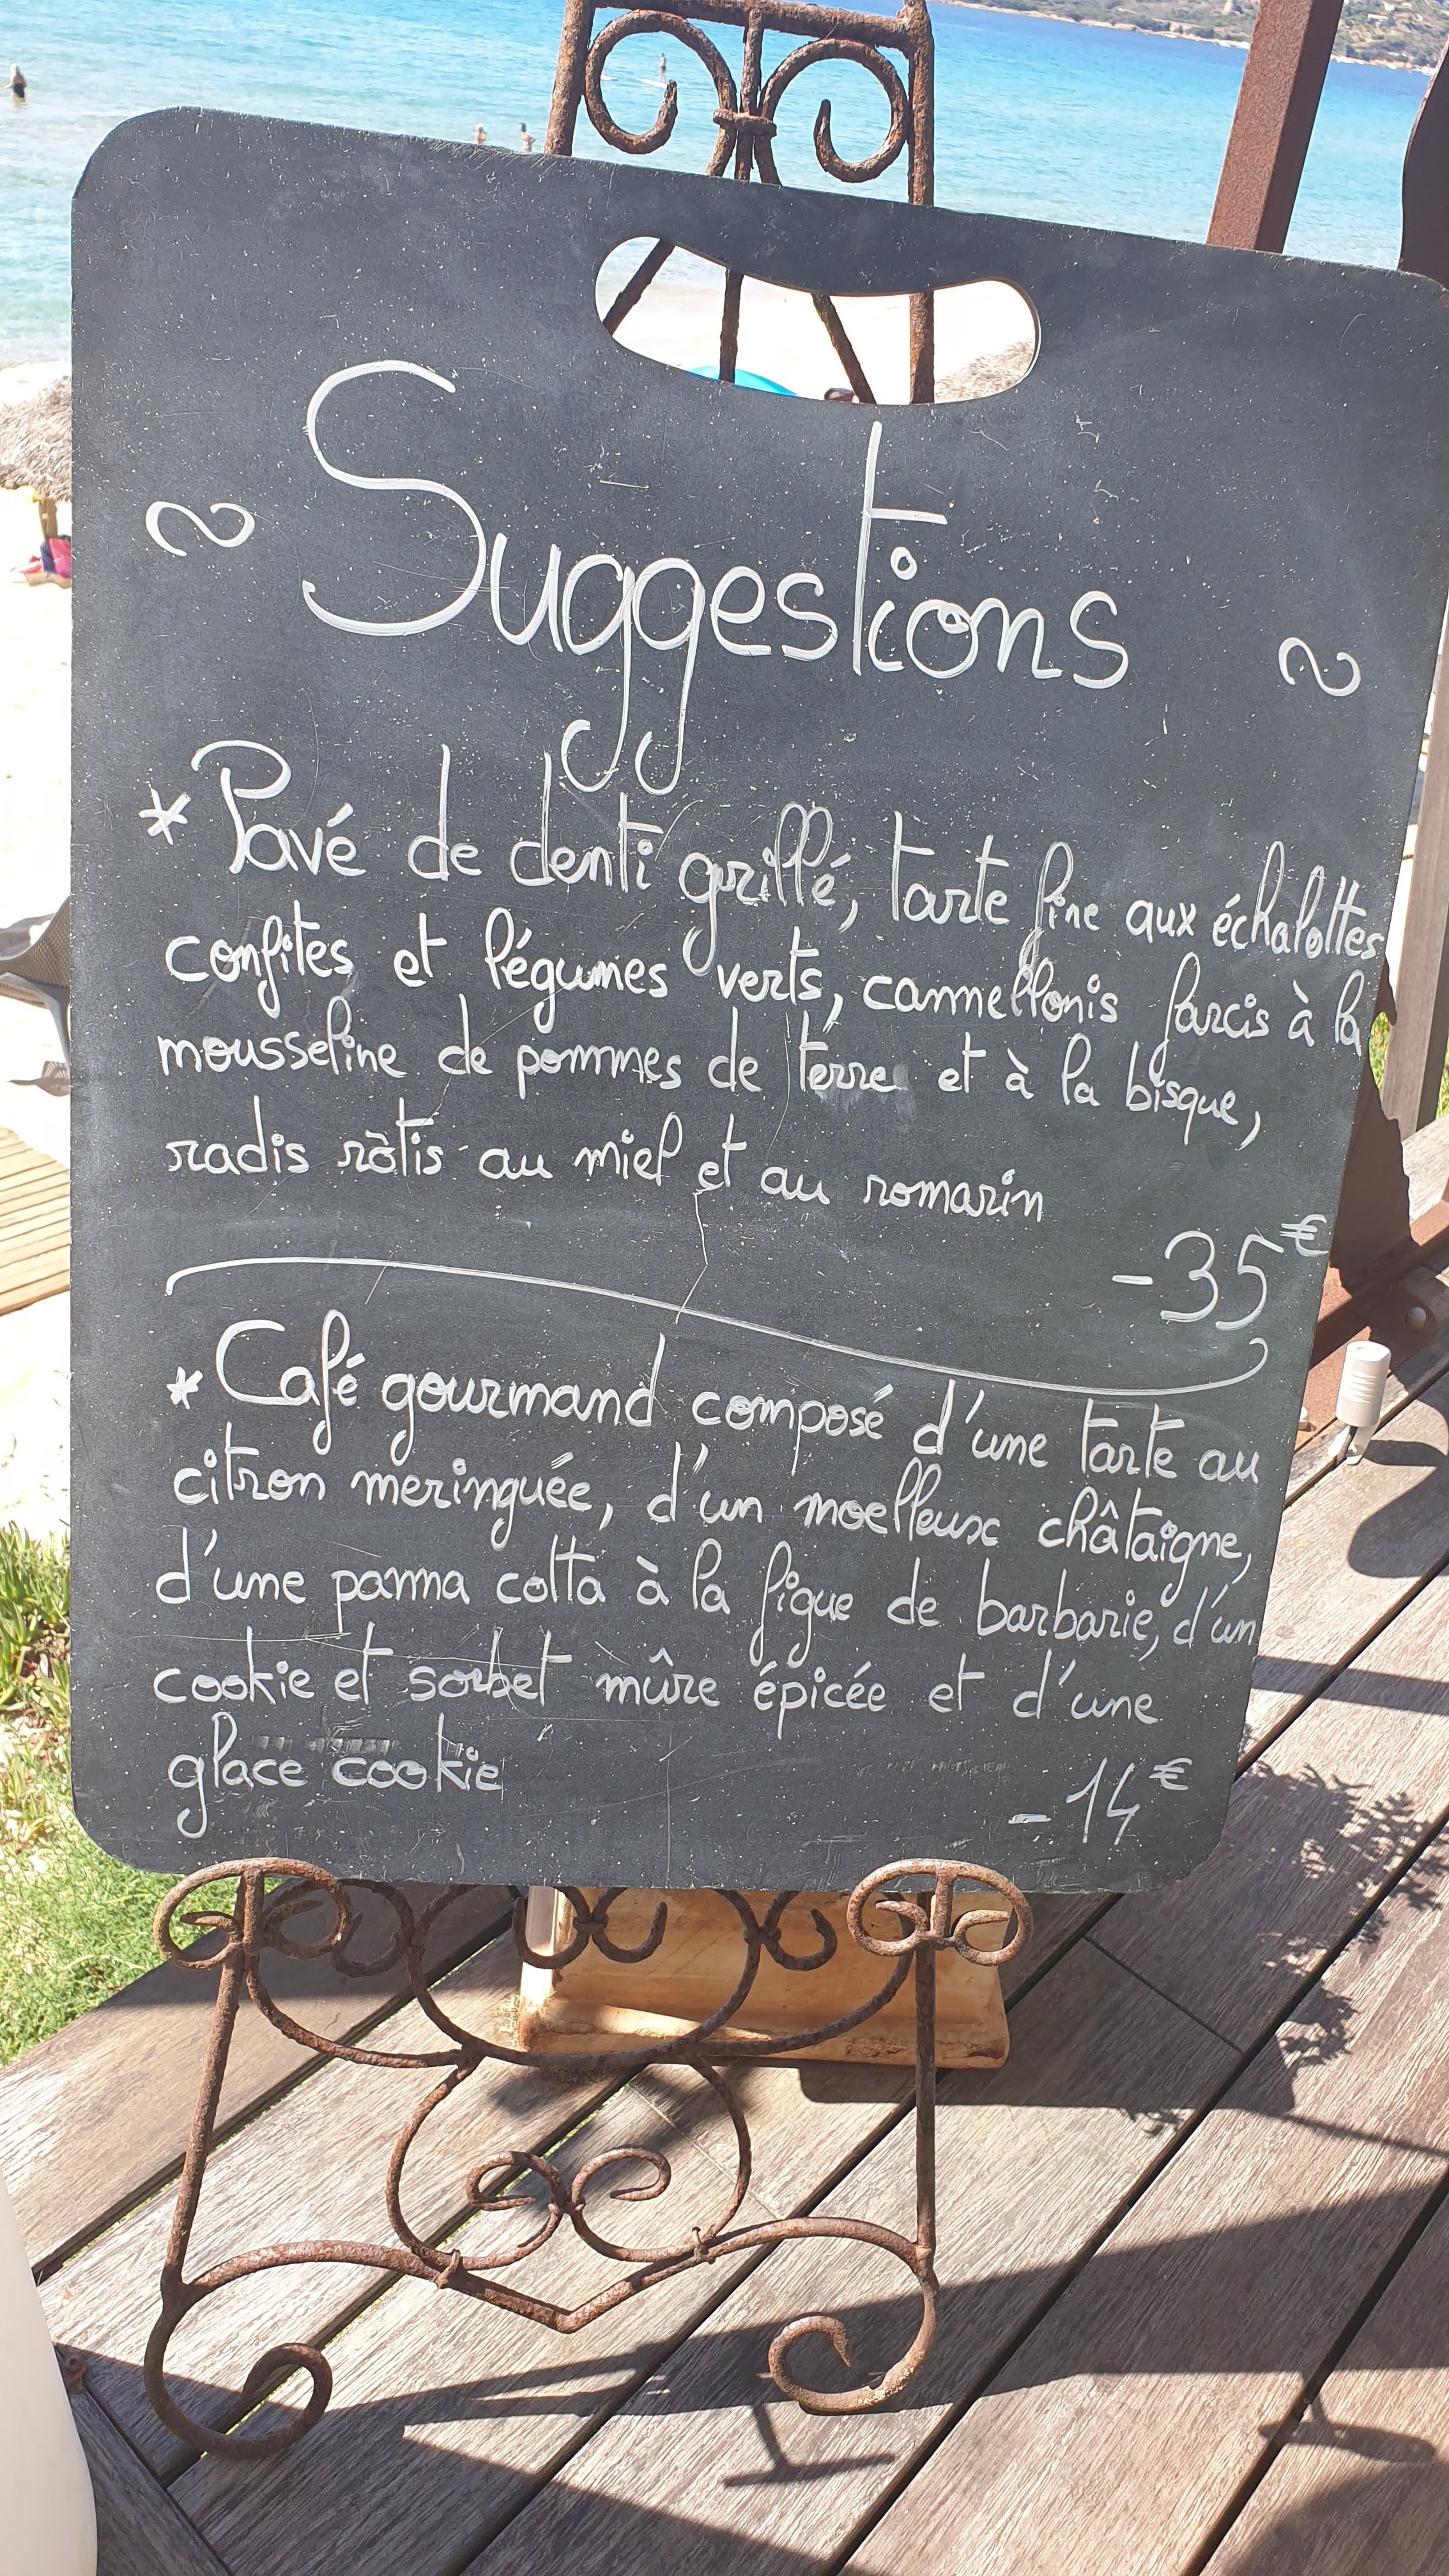 Suggestions
* Pavé de denti grillé, tarte fine aux échalottes
confites et légumes verts, cannellonis farcis à la
mousseline de pommes de terre et à la bisque,
radis ròtis au miel et au romarin
-35€
* Café gourmand composé d'une tarte au
citron meringuée, d'un moelleux châtaigne,
d'une panna cotta à la figue de barbarie, d'un
cookie et sorbet mûre épicée et d'une
glace cookie
-14€